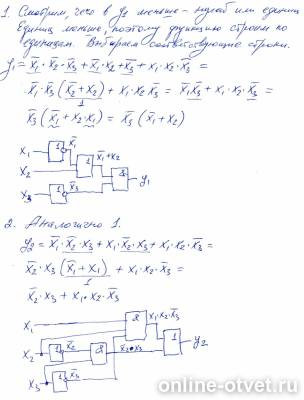 1. Смотрим, чего в y₃ меньше - нулей или единиц
Единиц меньше, поэтому функцию строим по
единицам. Выбираем соответствующие строки.
y₁ = x̄₁·x̄₂·x̄₃ + x̄₁·x₂·x̄₃ + x₁·x₂·x̄₃ =
= x̄₁·x̄₃ (x̄₂+x₂) + x₁·x₂·x̄₃ = x̄₁x̄₃ + x₁·x₂·x̄₃ =
1
x̄₃ (x̄₁ + x₂·x₁) = x̄₃ (x̄₁ + x₂)
x₁ 1 x̄₁
x₂ 1 x̄₁+x₂
x₃ 1 x̄₃ & y₁
2. Аналогично 1.
y₂ = x̄₁·x̄₂·x₃ + x₁·x̄₂·x₃ + x₁·x₂·x̄₃ =
x̄₂·x₃ (x̄₁ + x₁) + x₁·x₂·x̄₃ =
1
x̄₂·x₃ + x₁·x₂·x̄₃
x₁ & x₁x₂x̄₃
x₂ 1 x̄₂ & x̄₂x₃ 1 y₂
x₃ 1 x̄₃
online-otvet.ru